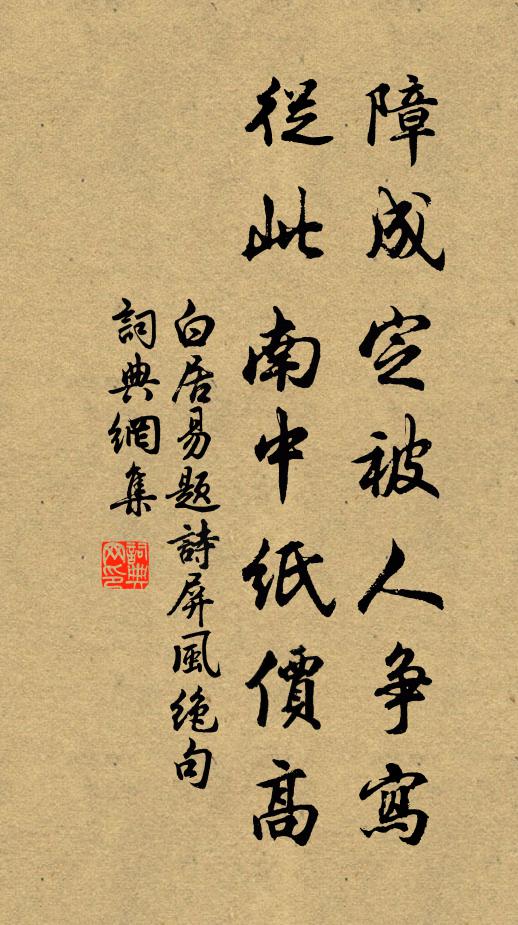 障成定被人争寫
從此南中紙價高
白居易題詩屏風絶句
詞典網集
詞典網印